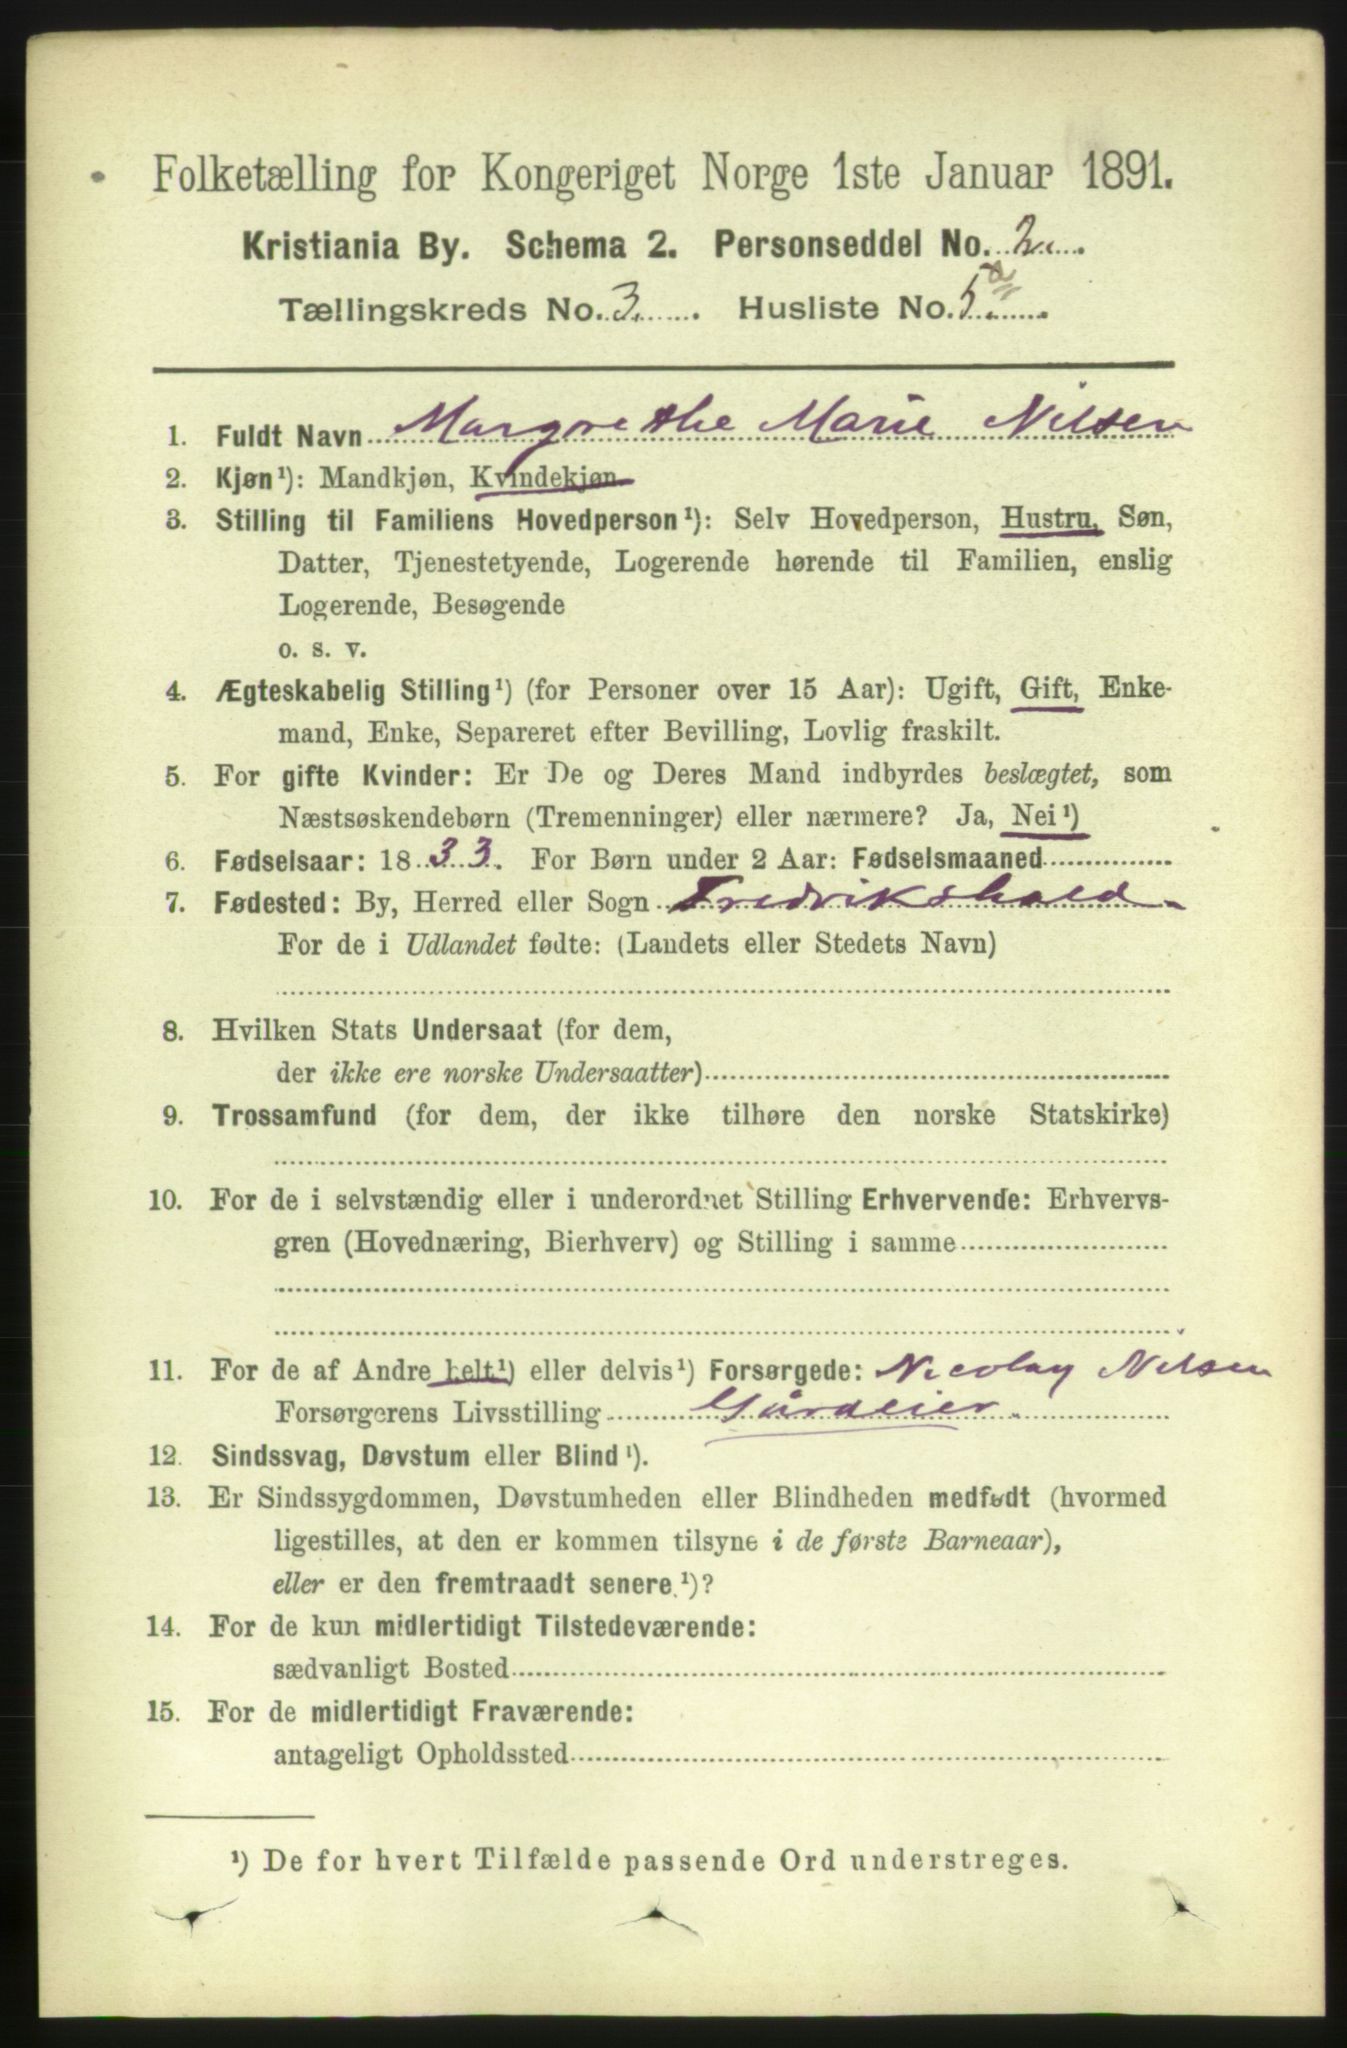 Folketælling for Kongeriget Norge 1ste Januar 1891.
Kristiania By. Schema 2. Personseddel No. 2.
Tællingskreds No. 3. Husliste No. 5a
1. Fuldt Navn Margrethe Marie Nilsen
2. Kjøn¹): Mandkjøn, Kvindekjøn
3. Stilling til Familiens Hovedperson¹): Selv Hovedperson, Hustru, Søn,
Datter, Tjenestetyende, Logerende hørende til Familien, enslig
Logerende, Besøgende
o. s. v.
4. Ægteskabelig Stilling¹) (for Personer over 15 Aar): Ugift, Gift, Enke-
mand, Enke, Separeret efter Bevilling, Lovlig fraskilt.
5. For gifte Kvinder: Er De og Deres Mand indbyrdes beslægtet, som
Næstsøskendebørn (Tremenninger) eller nærmere? Ja, Nei¹)
6. Fødselsaar: 1833. For Børn under 2 Aar: Fødselsmaaned
7. Fødested: By, Herred eller Sogn Fredrikshald
For de i Udlandet fødte: (Landets eller Stedets Navn)
8. Hvilken Stats Undersaat (for dem,
der ikke ere norske Undersaatter)
9. Trossamfund (for dem, der ikke tilhøre den norske Statskirke)
10. For de i selvstændig eller i underordnet Stilling Erhvervende: Erhvervs-
gren (Hovednæring, Bierhverv) og Stilling i samme
11. For de af Andre helt¹) eller delvis¹) Forsørgede: Nicolay Nilsen
Forsørgerens Livsstilling Gårdeier.
12. Sindssvag, Døvstum eller Blind¹).
13. Er Sindssygdommen, Døvstumheden eller Blindheden medfødt (hvormed
ligestilles, at den er kommen tilsyne i de første Barneaar),
eller er den fremtraadt senere.¹)?
14. For de kun midlertidigt Tilstedeværende:
sædvanligt Bosted
15. For de midlertidigt Fraværende:
antageligt Opholdssted
¹) De for hvert Tilfælde passende Ord understreges.